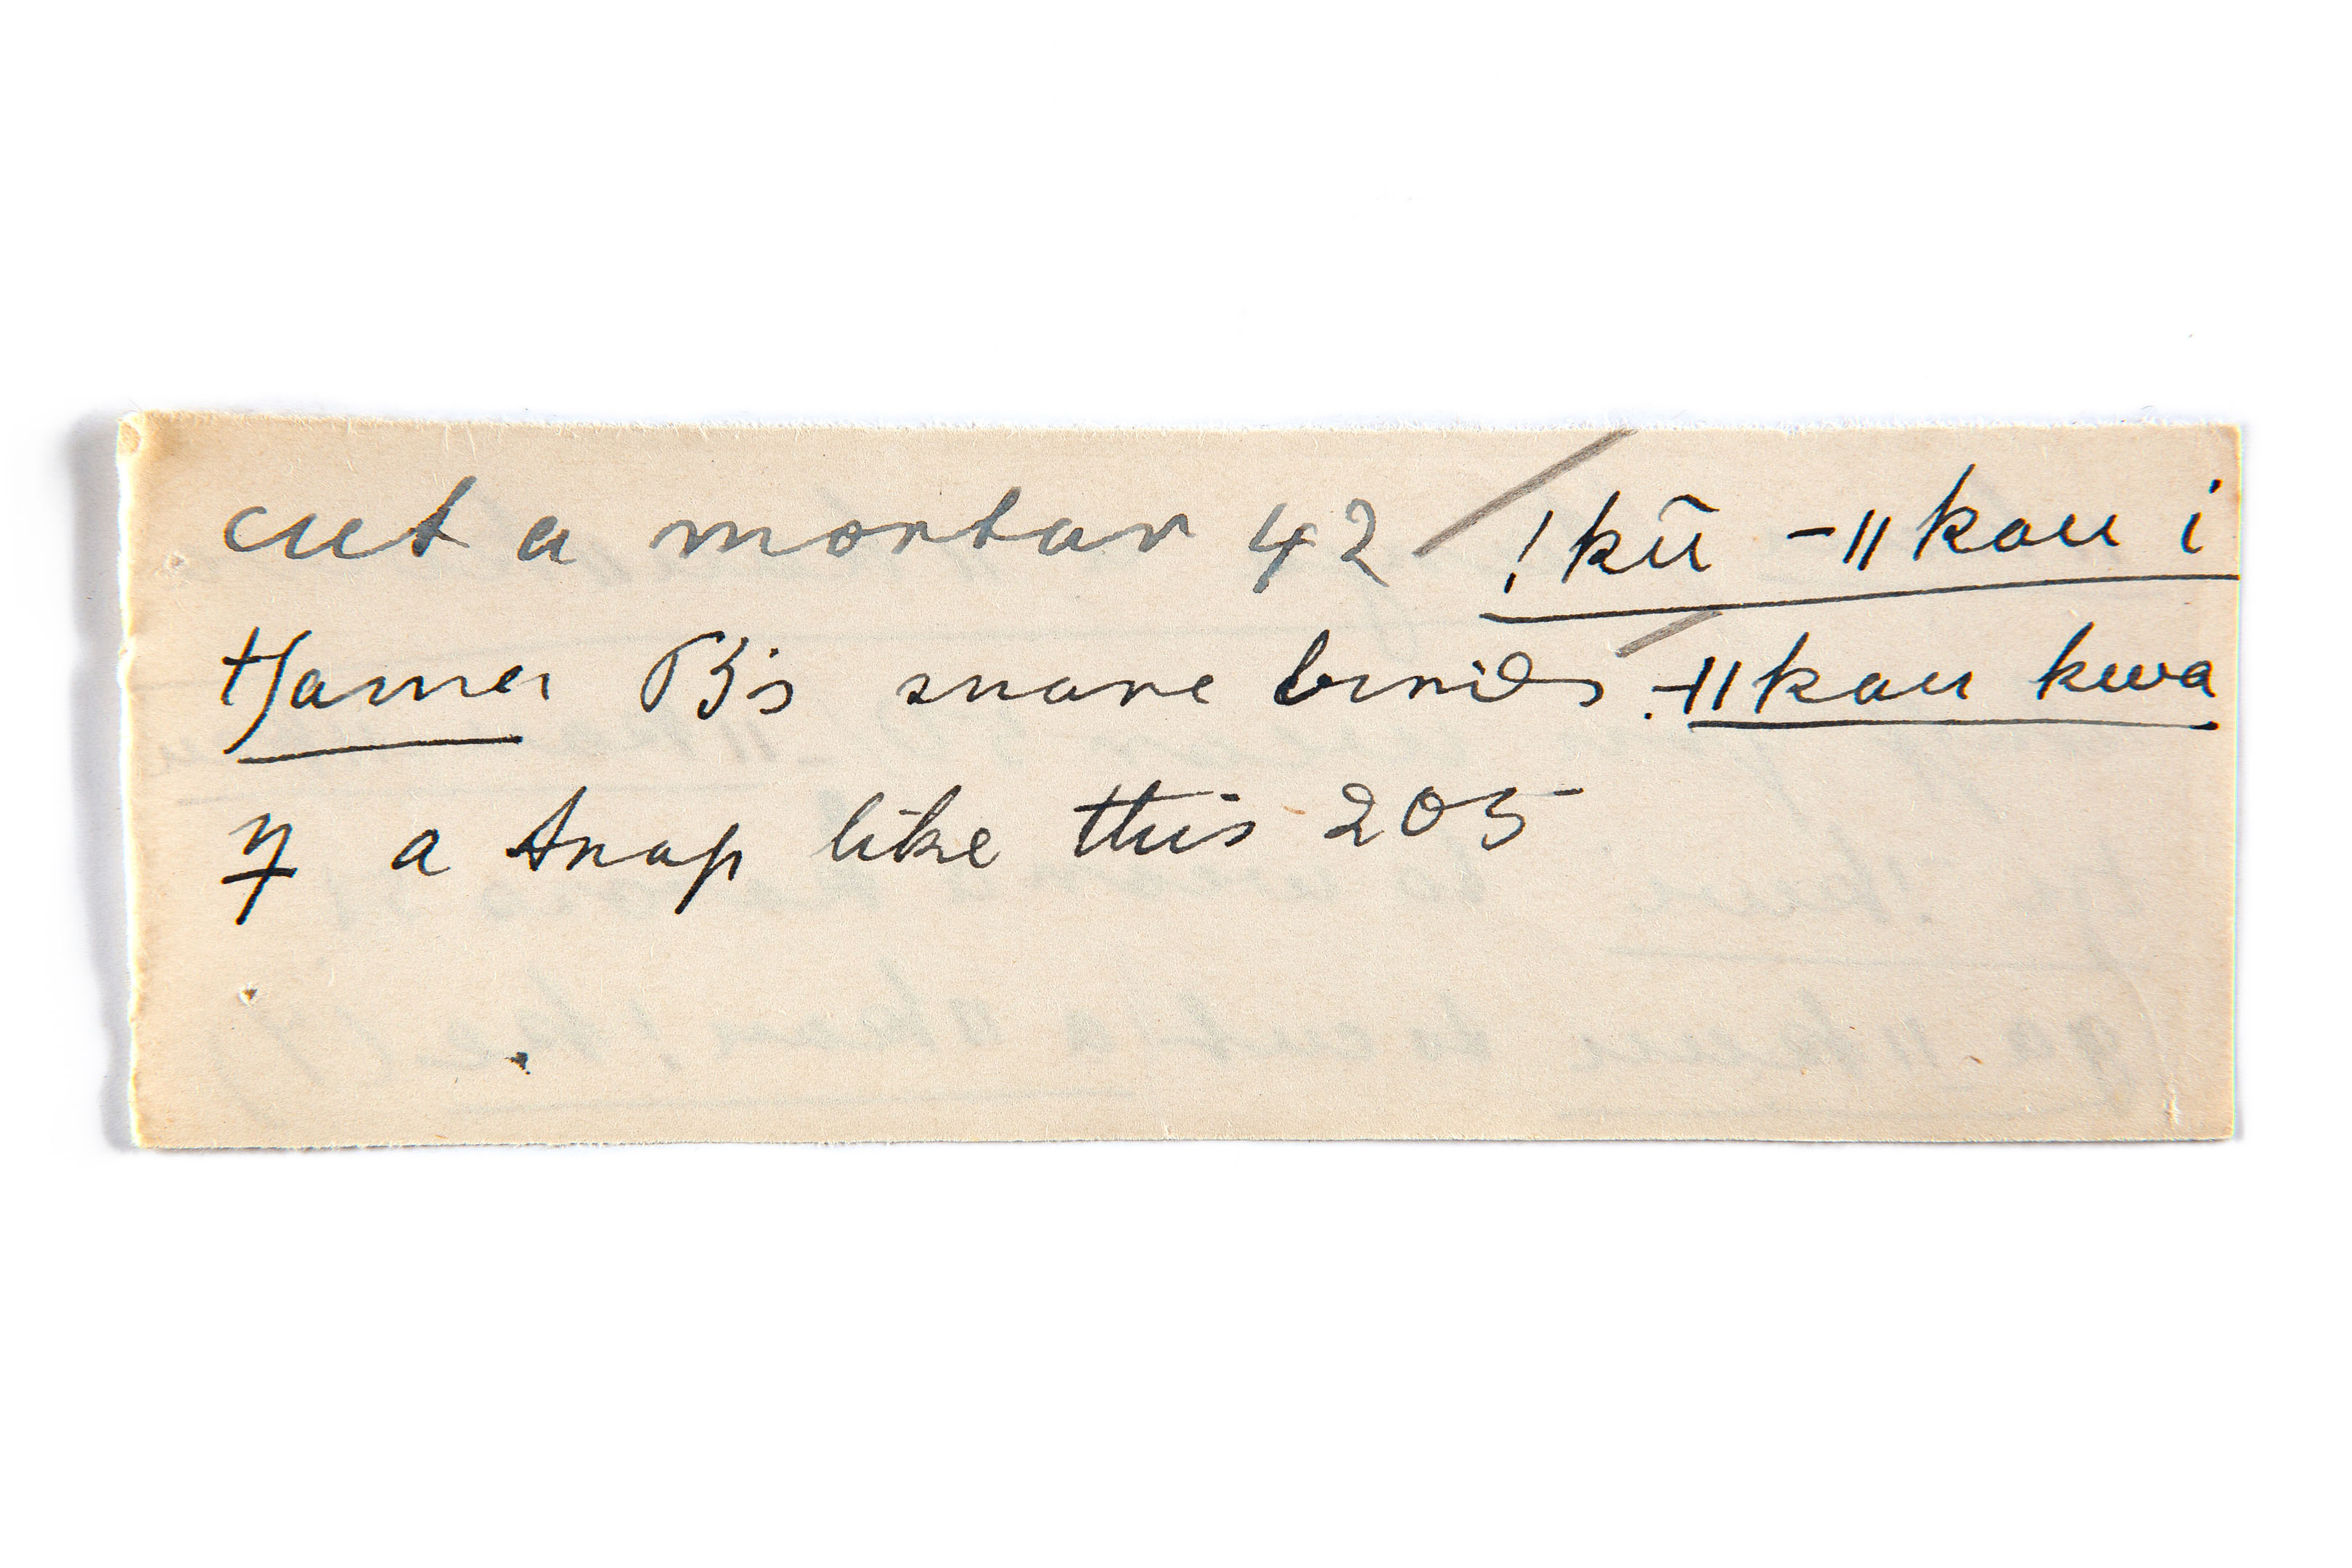 cut a mortar 42 / !kū -ǁkau i
tʃama B's snare birds / .-ǁkau kwa
a trap like this 205